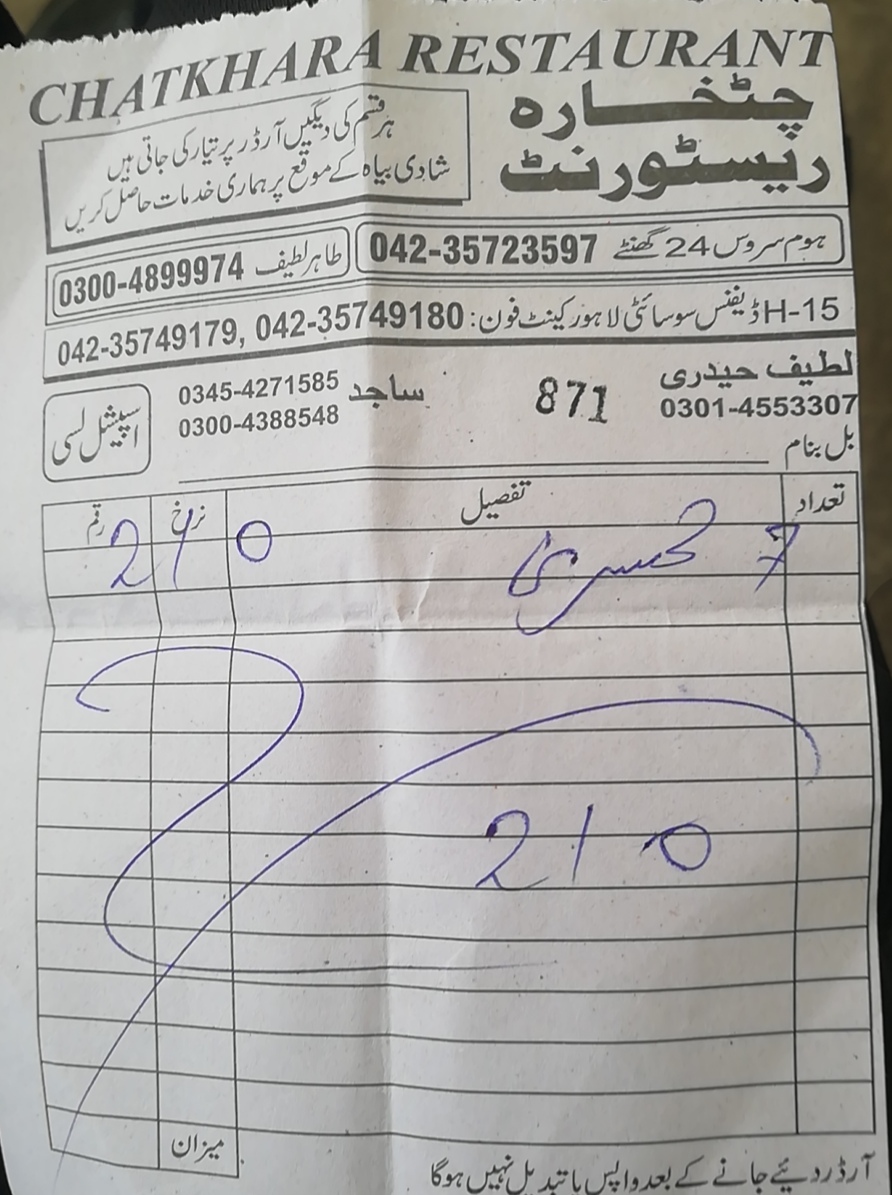 CHATKHARA RESTAURANT
چٹخارہ
ریسٹورنٹ
ہر قسم کی دیگیں آرڈر پر تیار کی جاتی ہیں
شادی بیاہ کے موقع پر ہماری خدمات حاصل کریں
ہوم سروس 24 گھنٹے 042-35723597
طاہر لطیف 0300-4899974
H-15 ڈیفنس سوسائٹی لاہور کینٹ فون: 042-35749179, 042-35749180
لطیف حیدری
0301-4553307
871
ساجد 0345-4271585
0300-4388548
اسپیشل لسی
بل بنام
تعداد تفصیل نرخ رقم
7 210
210
میزان
آرڈر دیئے جانے کے بعد واپس یا تبدیل نہیں ہوگا